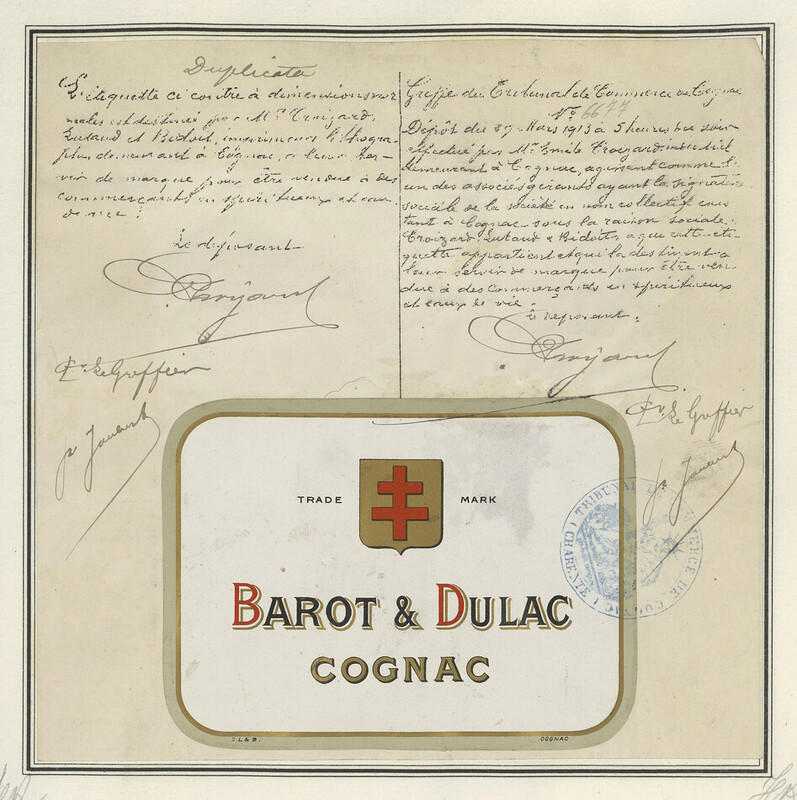 Duplicata
L'étiquette ci contre à dimensions nor
males est destinée par MM. Croizard,
Lutaud et Bidoit, imprimeurs lithogra-
phes demeurant à Cognac, à leur ser-
vir de marque pour être vendue à des
commerçants en spiritueux et eaux
de vie.
Le déposant
Croizard
Pr. Le Greffier
Greffe du Tribunal de Commerce de Cognac
No. 6677
Dépôt du 27 Mars 1913 à 5 heures du soir
effectué par Mr. Emile Croizard, industriel
demeurant à Cognac, agissant comme l'
un des associés gérants ayant la signature
sociale de la société en nom collectif exis
tant à Cognac sous la raison sociale:
Croizard, Lutaud & Bidoit, à qui cette éti-
quette appartient et qui la destinent à
leur servir de marque pour être ven-
due à des commerçants en spiritueux
et eaux de vie.
Le déposant.
Croizard
Pr. Le Greffier
TRADE MARK
BAROT & DULAC
COGNAC
C.L & B. COGNAC
TRIBUNAL DE COMMERCE DE COGNAC (CHARENTE)